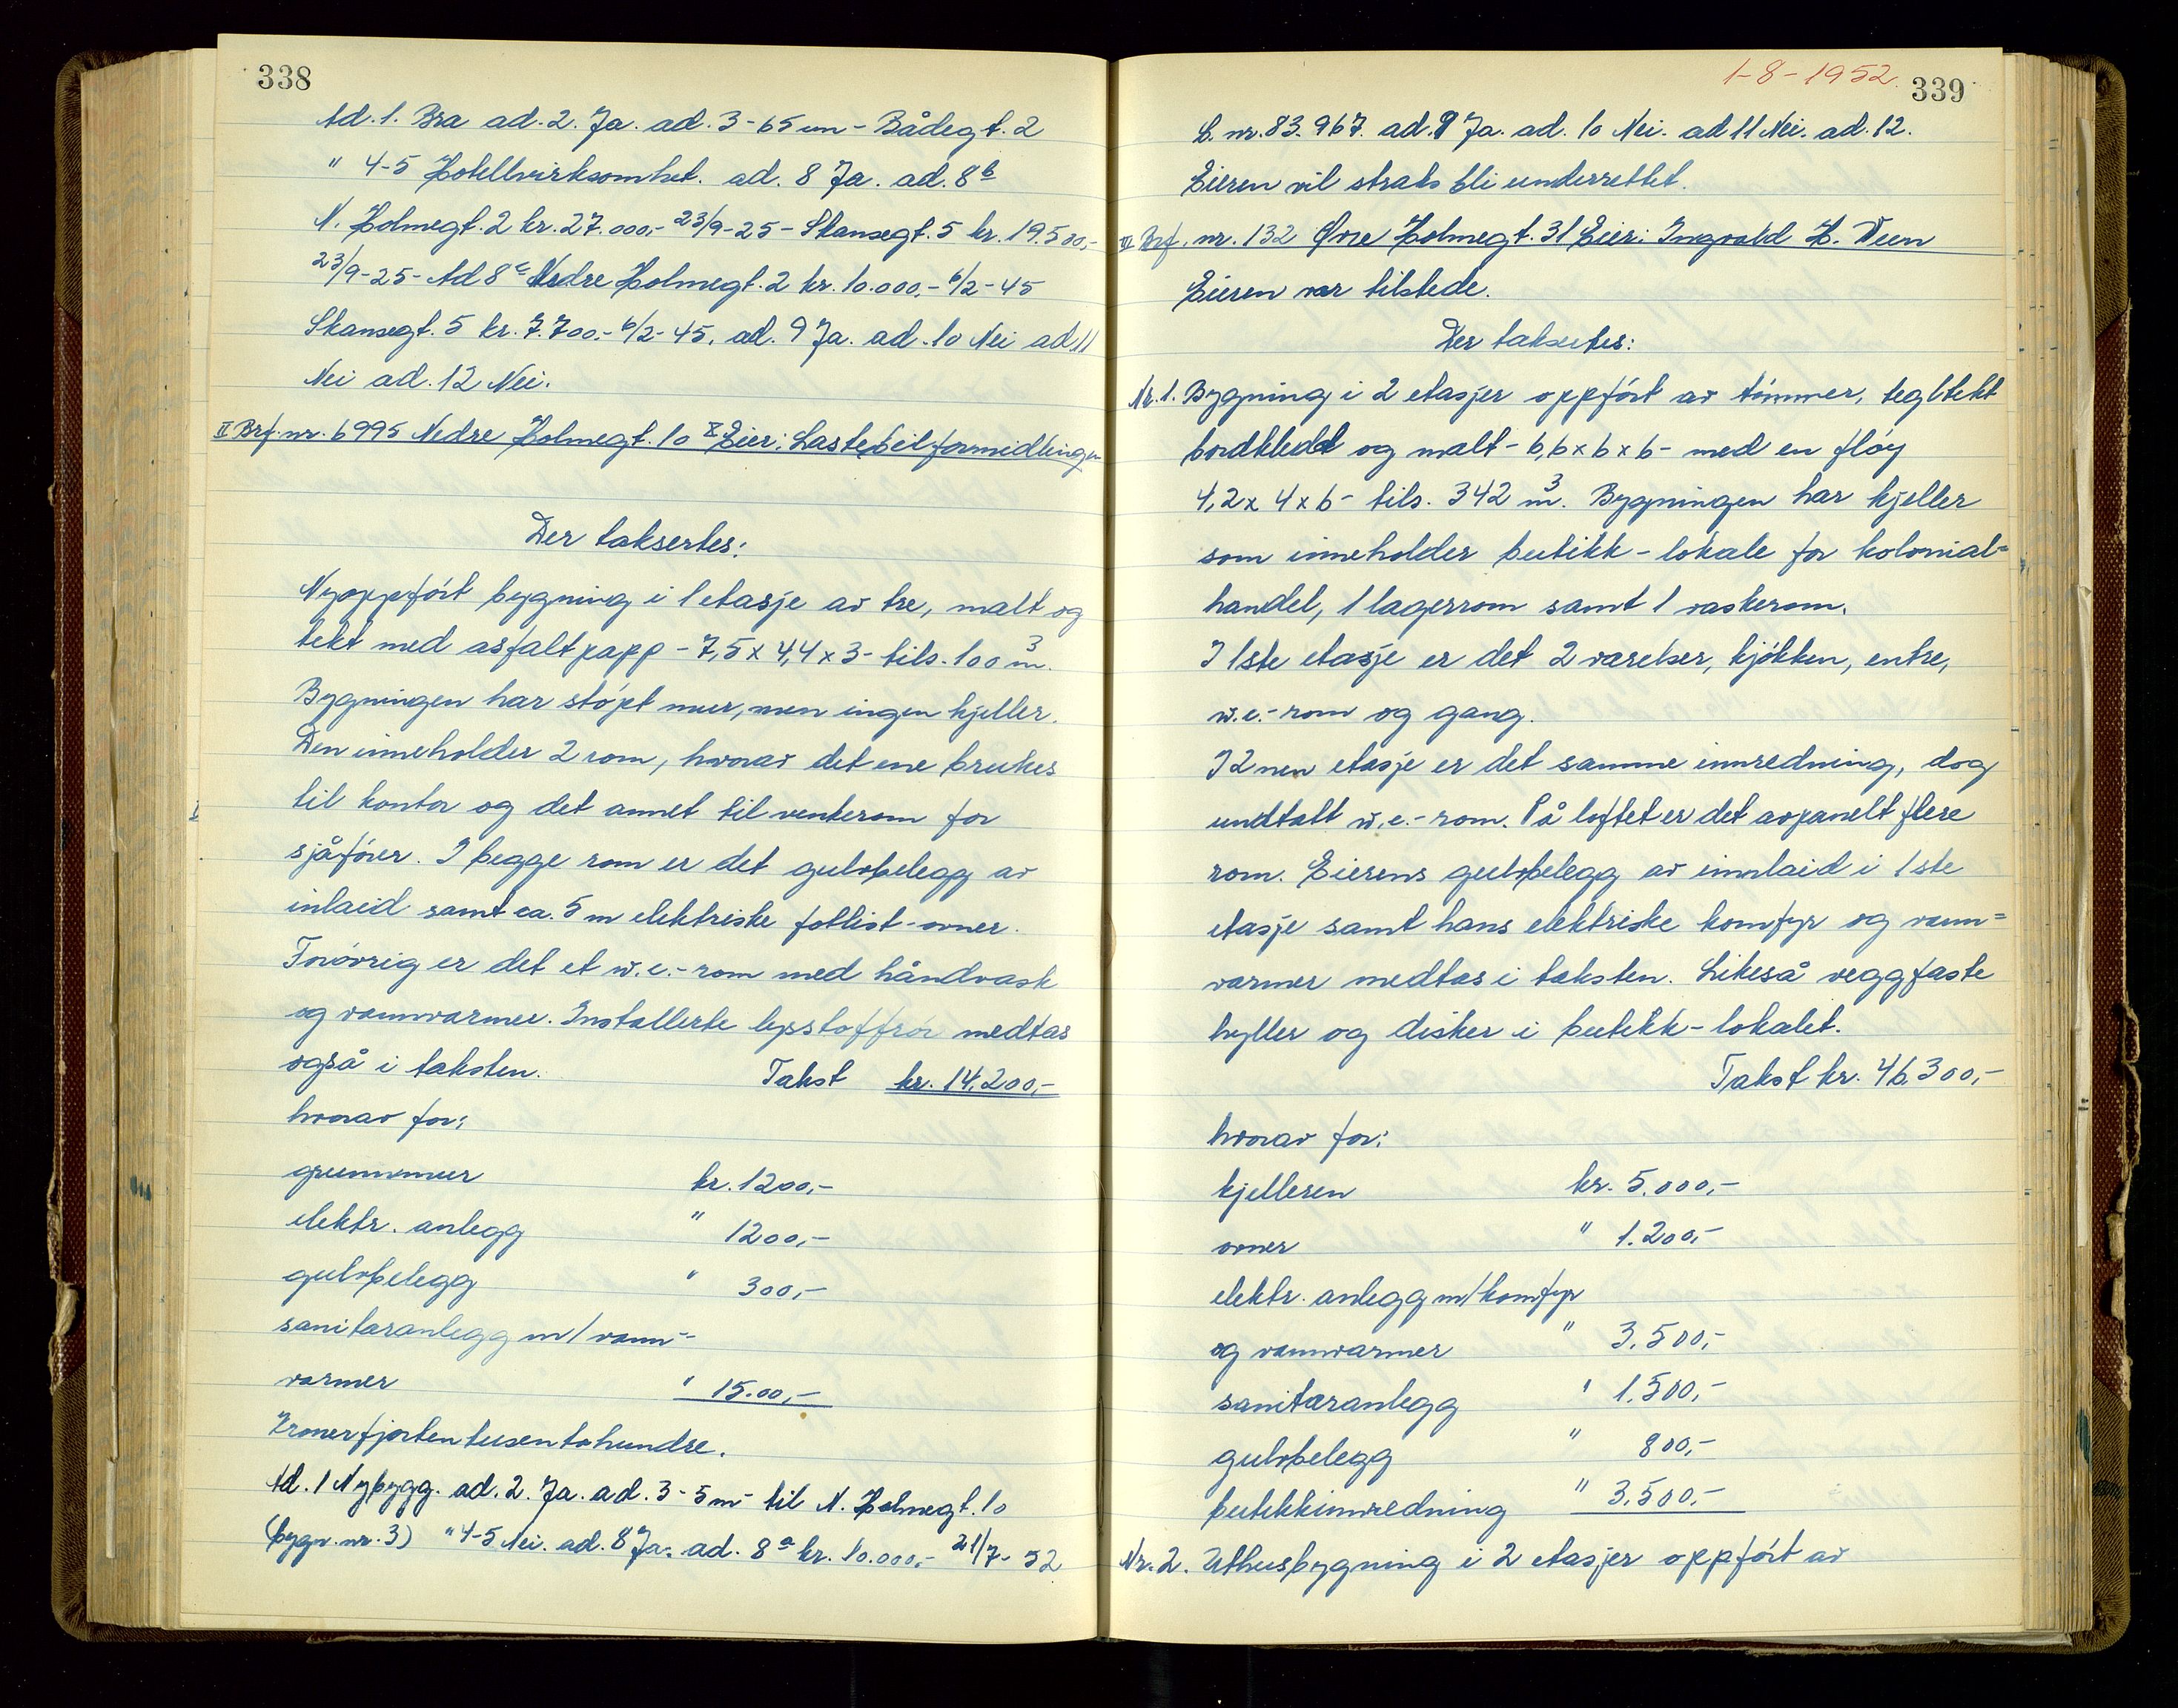 338
Ad. 1. Bra ad. 2. Ja. ad. 3 - 65 cm - Bådegt. 2
" 4-5 Hotellvirksomhet. ad. 8 Ja. ad. 8 b
N. Holmegt. 2 kr. 27.000,- 23/9-25 - Skansegt. 5 kr. 19.500,-
23/9-25 - Ad 8 c Nedre Holmegt. 2 kr. 10.000,- 6/2-45
Skansegt. 5 kr. 7.700,- 6/2-45. ad. 9 Ja. ad. 10 Nei ad 11
Nei ad. 12 Nei.
II Brf. nr. 6995 Nedre Holmegt. 10 X Eier: Lastebilformidlingen
Der taksertes:
Nyoppført bygning i 1 etasje av tre, malt og
tekt med asfaltpapp - 7,5 x 4,4 x 3 - tils. 100 m3.
Bygningen har støpt mur, men ingen kjeller.
Den inneholder 2 rom, hvorav det ene brukes
til kontor og det annet til venterom for
sjåfører. I begge rom er det gulvbelegg av
inlaid samt ca. 5 m elektriske fotlist-ovner.
Forøvrig er det et w.c.-rom med håndvask
og vannvarmer. Installerte lysstoffrør medtas
også i taksten. Takst kr. 14.200,-
hvorav for:
grunnmur kr. 1200,-
elektr. anlegg " 1200,-
gulvbelegg " 300,-
sanitæranlegg m/vann-
varmer " 15.00,-
Kroner fjorten tusen to hundre.
Ad. 1 Nybygg. ad. 2. Ja. ad. 3 - 5 m - til N. Holmegt. 10
(bygn. nr. 3) " 4-5 Nei. ad. 8 Ja. ad. 8 a kr. 10.000,- 21/7-52
1-8-1952.
339
L. nr. 83.967. ad. 9 Ja. ad. 10 Nei. ad 11 Nei. ad. 12.
Eieren vil straks bli underrettet.
III Brf. nr. 132 Øvre Holmegt. 31 Eier: Ingvald H. Veen
Eieren var tilstede.
Der taksertes:
Nr. 1. Bygning i 2 etasjer oppført av tømmer, tegltekt
bordkledt og malt - 6,6 x 6 x 6 - med en fløy
4,2 x 4 x 6 - tils. 342 m3. Bygningen har kjeller
som inneholder butikk-lokale for kolonial=
handel, 1 lagerrom samt 1 vaskerom.
I 1ste etasje er det 2 værelser, kjøkken, entre,
w.c.-rom og gang.
I 2nen etasje er det samme innredning, dog
undtatt w.c.-rom. På loftet er det avpanelt flere
rom. Eierens gulvbelegg av innlaid i 1ste
etasje samt hans elektriske komfyr og vann=
varmer medtas i taksten. Likeså veggfaste
hyller og disker i butikk-lokalet.
Takst kr. 46.300,-
hvorav for:
kjelleren kr. 5.000,-
ovner " 1.200,-
elektr. anlegg m/komfyr
og vannvarmer " 3.500,-
sanitæranlegg " 1.500,-
gulvbelegg " 800,-
butikkinnredning " 3.500,-
Nr. 2. Uthusbygning i 2 etasjer oppført av